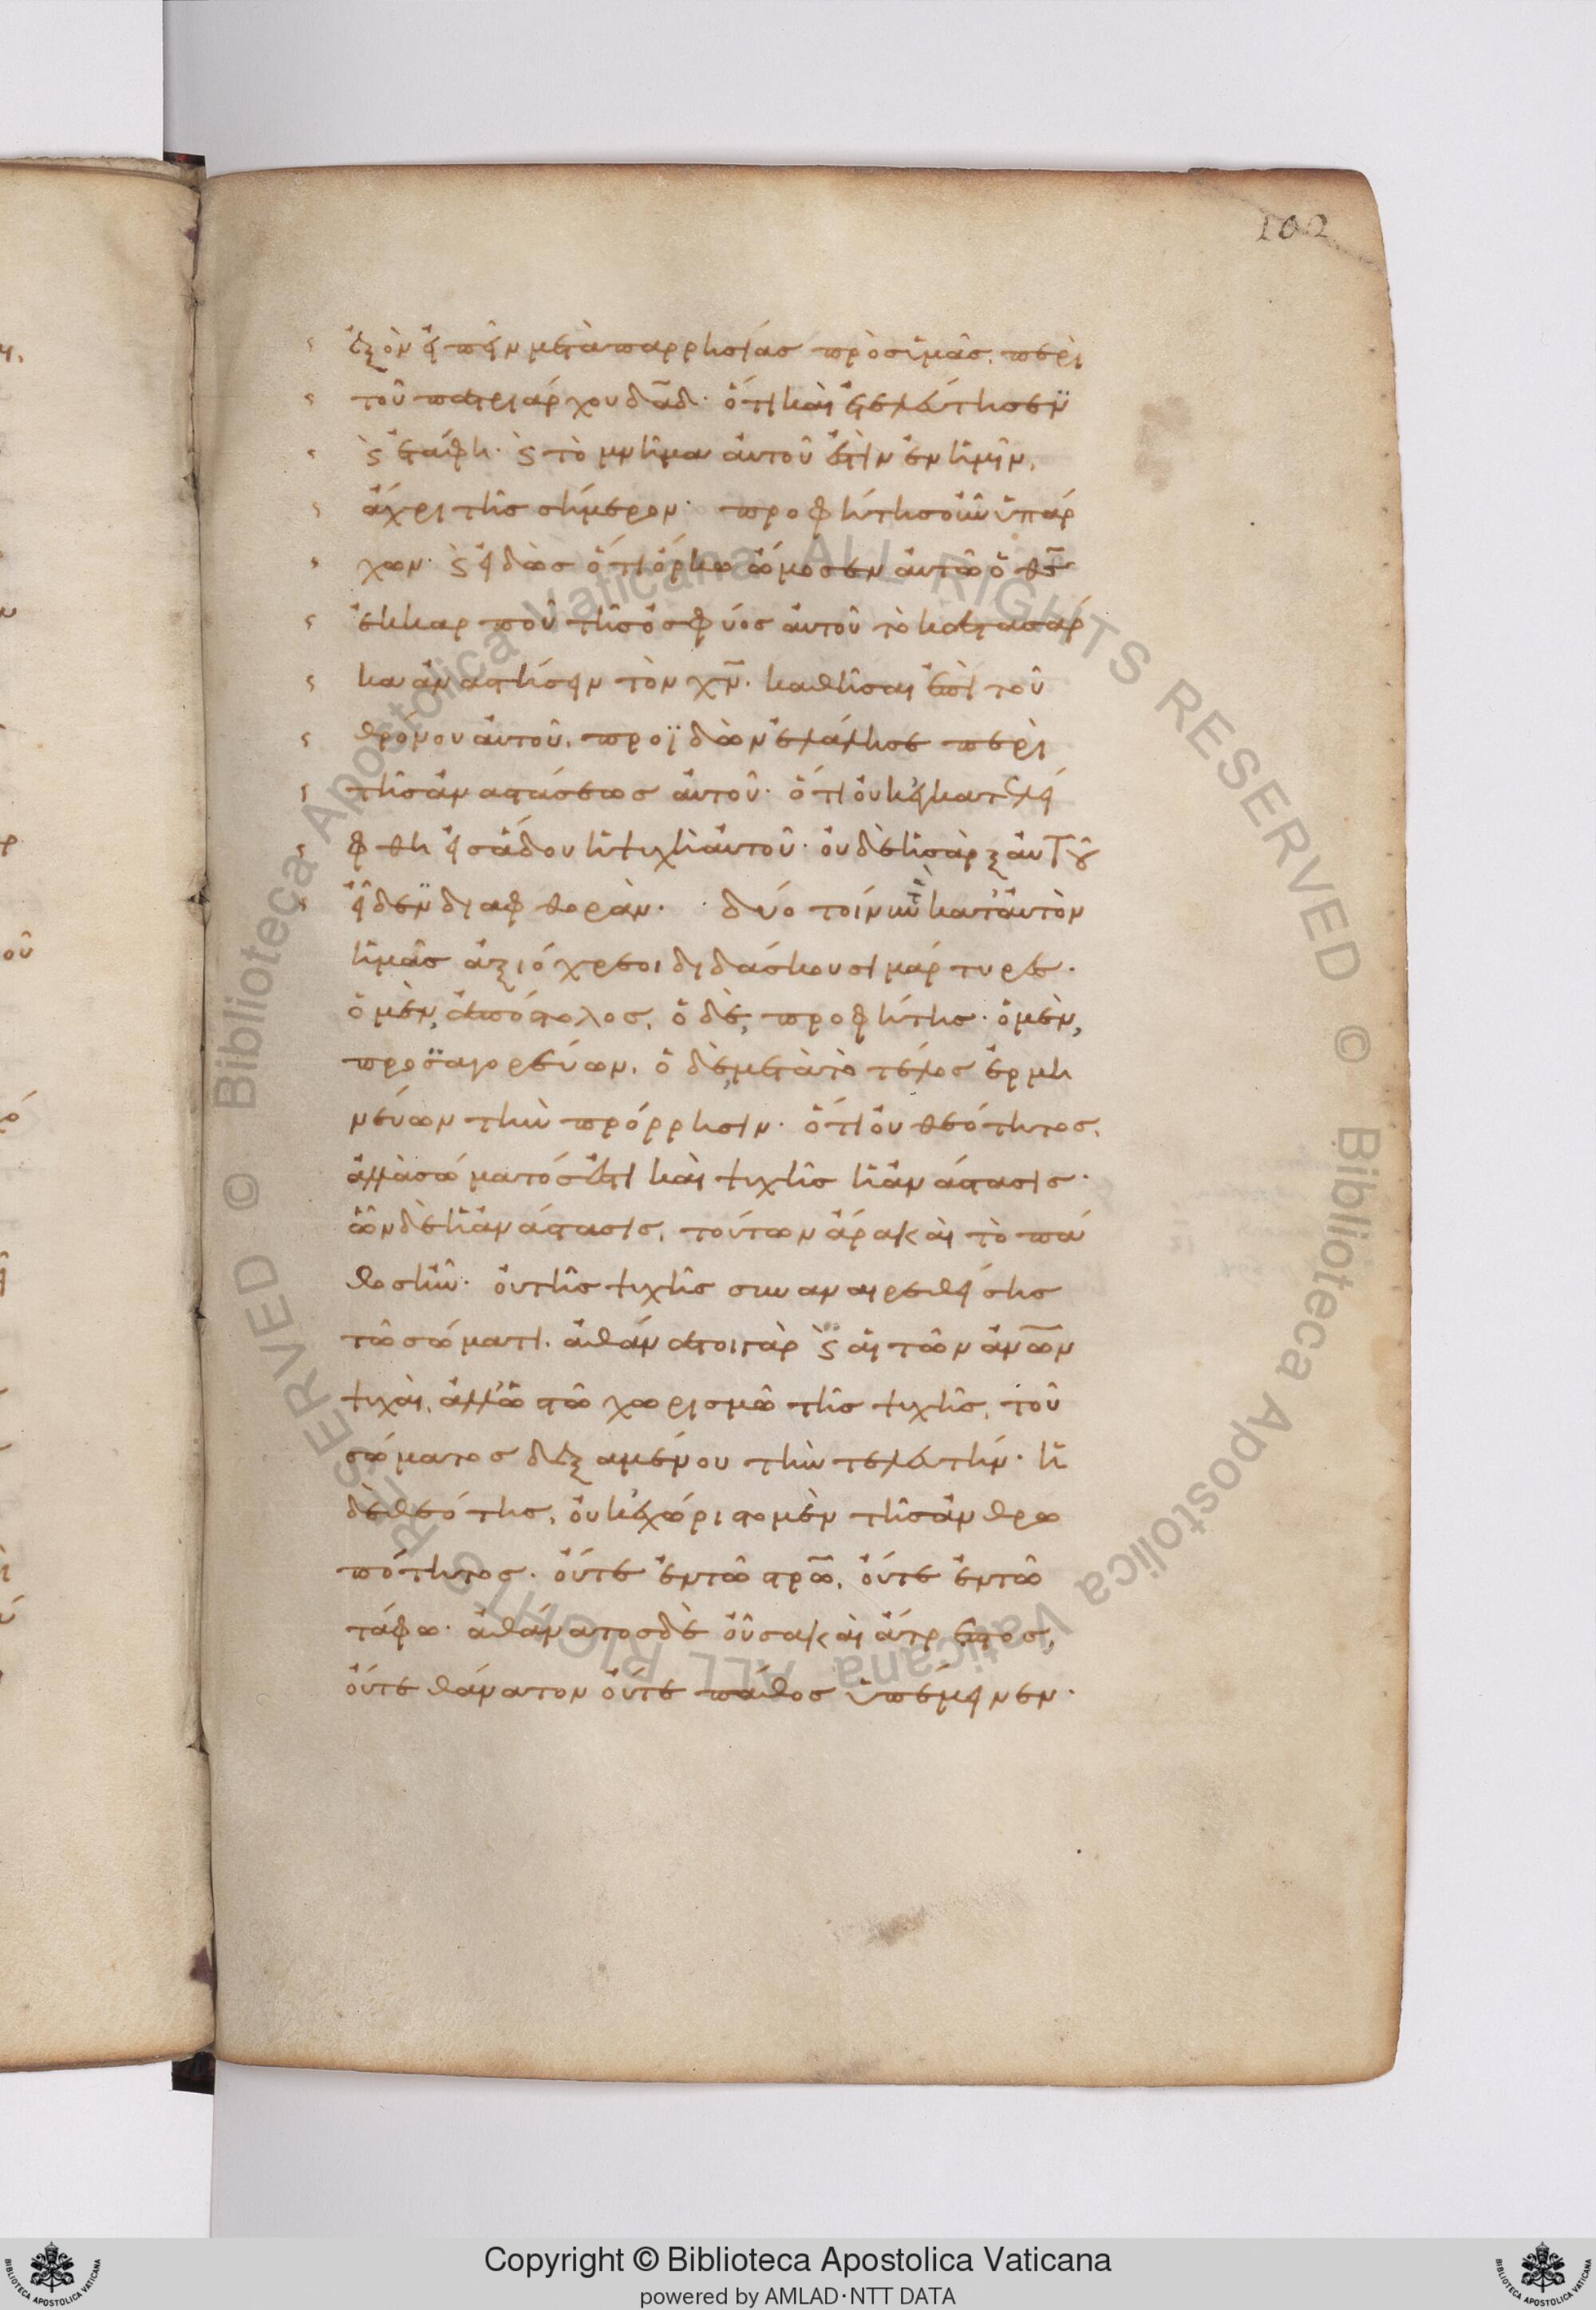 102
ἐξὸν εἰπεῖν μετὰ παρρησίας πρὸς ὑμᾶς, περὶ
τοῦ πατριάρχου δᾱδ· ὅτι καὶ ἐτελεύτησεν
ϛ̀ ἐτάφη· ϛ̀ τὸ μνῆμα αὐτοῦ ἐστὶν ἐν ἡμῖν,
ἄχρι τῆς σήμερον· προφήτης οὖν ὑπάρ
χων· ϛ̀ εἰδὼς ὅτι ὅρκω ὤμοσεν αὐτῶ ὁ θ̅ς̅
ἐκ καρποῦ τῆς ὀσφύος αὐτοῦ τὸ κατὰ σάρ
κα ἀναστήσειν τὸν χ̅ν̅· καθῆσαι ἐπὶ τοῦ
θρόνου αὐτοῦ, προϊδὼν ἐλάλησε περὶ
τῆς ἀναστάσεως αὐτοῦ· ὅτι οὐκ ἐγκατελεί
φθη εἰς ἅδου ἡ ψυχὴ αὐτοῦ· οὐδὲ ἡ σὰρξ αὐτοῦ
εἶδεν διαφθοράν· δύο τοίνυν κατ' αὐτὸν
ἡμᾶς ἀξιόχρεοι διδάσκουσι μάρτυρες·
ὁ μὲν, ἀπόστολος, ὁ δὲ, προφήτης· ὁ μὲν,
προσαγορεύων, ὁ δὲ, μετὰ τὸ τέλος ἑρμη
νεύων τὴν πρόρρησιν· ὅτι οὐ θεότητος,
ἀλλὰ σώματός ἐστι καὶ ψυχῆς ἡ ἀνάστασις·
ὧν δὲ ἡ ἀνάστασις, τούτων ἄρα καὶ τὸ πά
θος ἦν· οὐ τῆς ψυχῆς συναναιρεθείσης
τῶ σώματι. ἀθάνατοι γὰρ ϛ̀ αἱ τῶν ἀν̅ω̅ν
ψυχαὶ, ἀλλ' ὡς τῶ χωρισμῶ τῆς ψυχῆς, τοῦ
σώματος δεξαμένου τὴν τελευτήν· ἡ
δὲ θεότης, οὐκ ἐχώριστο μὲν τῆς ἀνθρω
πότητος· οὔτε ἐν τῶ στρ̅ω̅, οὔτε ἐν τῶ
τάφω· ἀθάνατος δὲ οὖσα καὶ ἄτρεπτος,
οὔτε θάνατον οὔτε πάθος ὑπέμεινεν·
Copyright © Biblioteca Apostolica Vaticana
powered by AMLAD·NTT DATA